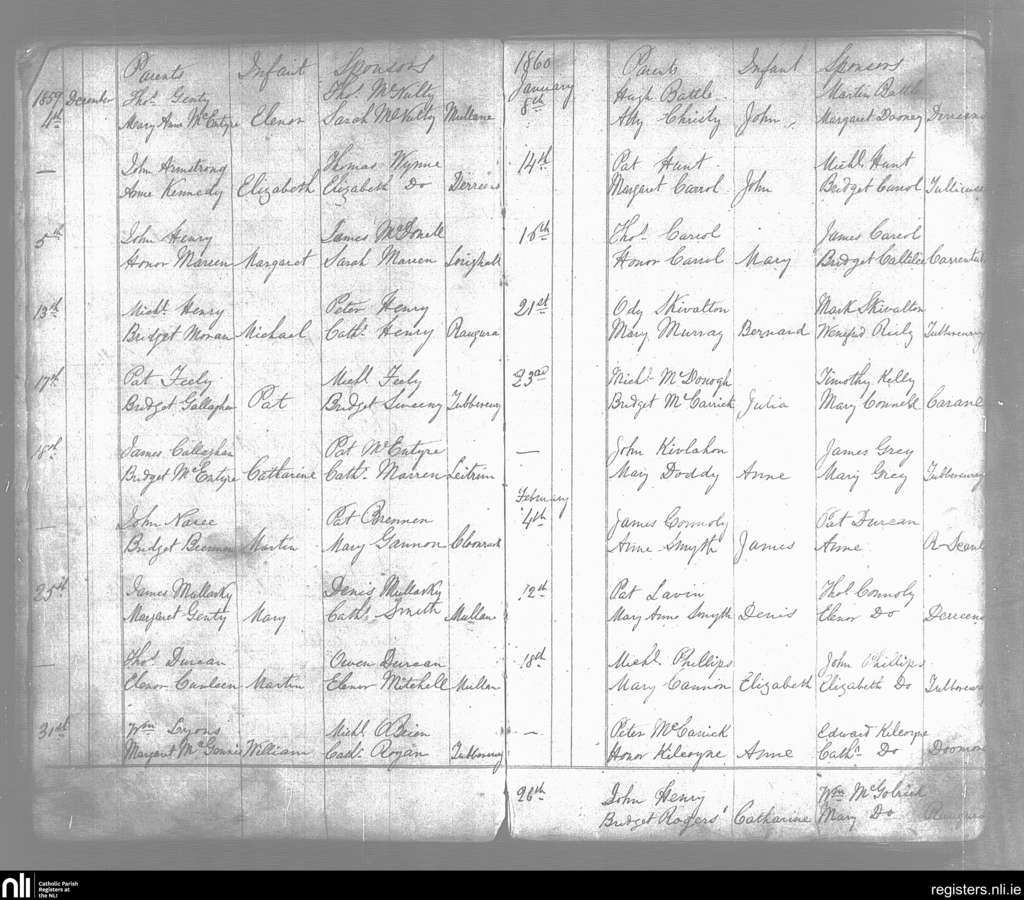 Parents Infant Sponsors
1859 December Thos. Genty Thos McNulty
4th Mary Ann McEntyre Elenor Sarah McNulty Mullane
— John Armstrong Thomas Wynne
Anne Kennedy Elizabeth Elizabeth Do Derreens
5th John Henry James McDonell
Honor Mareen Margaret Sarah Mareen
13th Michl. Henry Peter Henry
Bridget Moran Michael Cath. Henry Raugura
17th Pat Feely Michl Feely
Bridget Gallaghan Pat Bridget Sweeny Tubbercury
18th James Callaghan Pat McEntyre
Bridget McEntyre Catharine Cath. Marren Leitrim
John Naree Pat Brennen
Bridget Brennen Martin Mary Gannon
25th James Mullarky Denis Mullarky
Margaret Genty Mary Cath. Smith Mullane
— Thos Durcan Owen Durcan
Elenor Martin Elenor Mitchell Mullan
31st Wm Lyons Michl OBrien
Margaret William Cath. Rogan Tubbercury
1860 Parents Infant Sponsors
January
8th Hugh Battle Martin Battle
Abby Christy John Margaret Dooney Derreens
14th Pat Hunt Michl. Hunt
Margaret Carrol John Bridget Carrol
16th Thos. Carrol James Carrol
Honor Carrol Mary Bridget
21st Ody Skivalton Mark Skivalton
Mary Murray Bernard Winifred Riely Tubbercurry
23rd Michl. McDonogh Timothy Kelly
Bridget McCarrick Julia Mary Connell Carane
— John Kivlahon James Grey
Mary Doddy Anne Mary Grey Tubbercurry
February
4th James Connoly Pat Durcan
Anne Smyth James Anne
12th Pat Lavin Thos Connoly
Mary Anne Smyth Denis Elenor Do Derreens
18th Michl. Phillips John Phillips
Mary Cannon Elizabeth Elizabeth Do Tubbercury
— Peter McCarrick Edward Kilcoyne
Honor Kilcoyne Anne Cath. Do Doomore
26th John Henry Wm McGolrick
Bridget Rogers Catharine Mary Do Raugura
nli Catholic Parish
Registers at
the NLI
registers.nli.ie